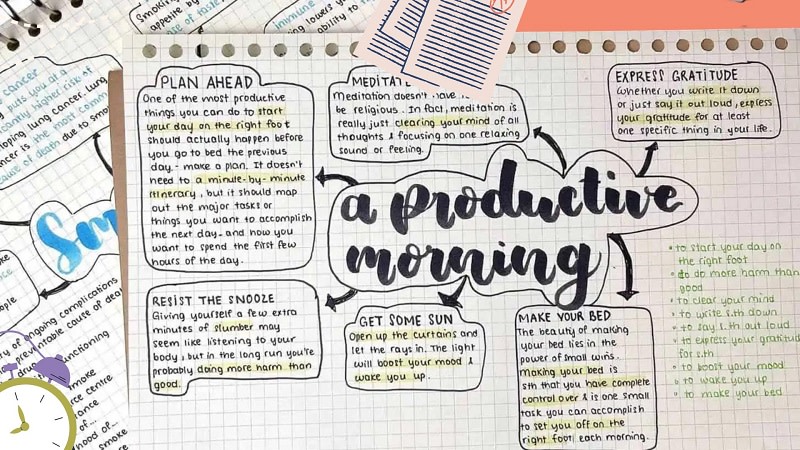 a productive
morning
PLAN AHEAD
One of the most productive
things you can do to start
your day on the right foot
should actually happen before
you go to bed the previous
day - make a plan. It doesn't
need to a minute-by-minute
itinerary, but it should map
out the major tasks or
things you want to accomplish
the next day - and how you
want to spend the first few
hours of the day.
MEDITATE
Meditation doesn't have
be religious. In fact, meditation is
really just clearing your mind of all
thoughts & focusing on one relaxing
sound or feeling.
EXPRESS GRATITUDE
Whether you write it down
or just say it out loud, express
your gratitude for at least
one specific thing in your life.
RESIST THE SNOOZE
Giving yourself a few extra
minutes of slumber may
seem like listening to your
body, but in the long run you're
probably doing more harm than
good.
GET SOME SUN
Open up the curtains and
let the rays in. The light
will boost your mood &
wake you up.
MAKE YOUR BED
The beauty of making
your bed lies in the
power of small wins.
Making your bed is
sth that you have complete
control over & is one small
task you can accomplish
to set you off on the
right foot each morning.
to start your day on
the right foot
to do more harm than
good
to clear your mind
to write s.th down
to say s.th out loud
to express your gratitude
for s.th
to boost your mood
to wake you up
to make your bed
Smoking
appetite by
immune
ing lowers your
ability to
cancer
puts you at a
cantly higher risk of
loping lung cancer. Lung
cancer is the most comm
cause of death due to smo
Sm
ople
ry of ongoing complications
preventable cause of dea
unctioning
rce centre
tance
of...
hood of...
smoke